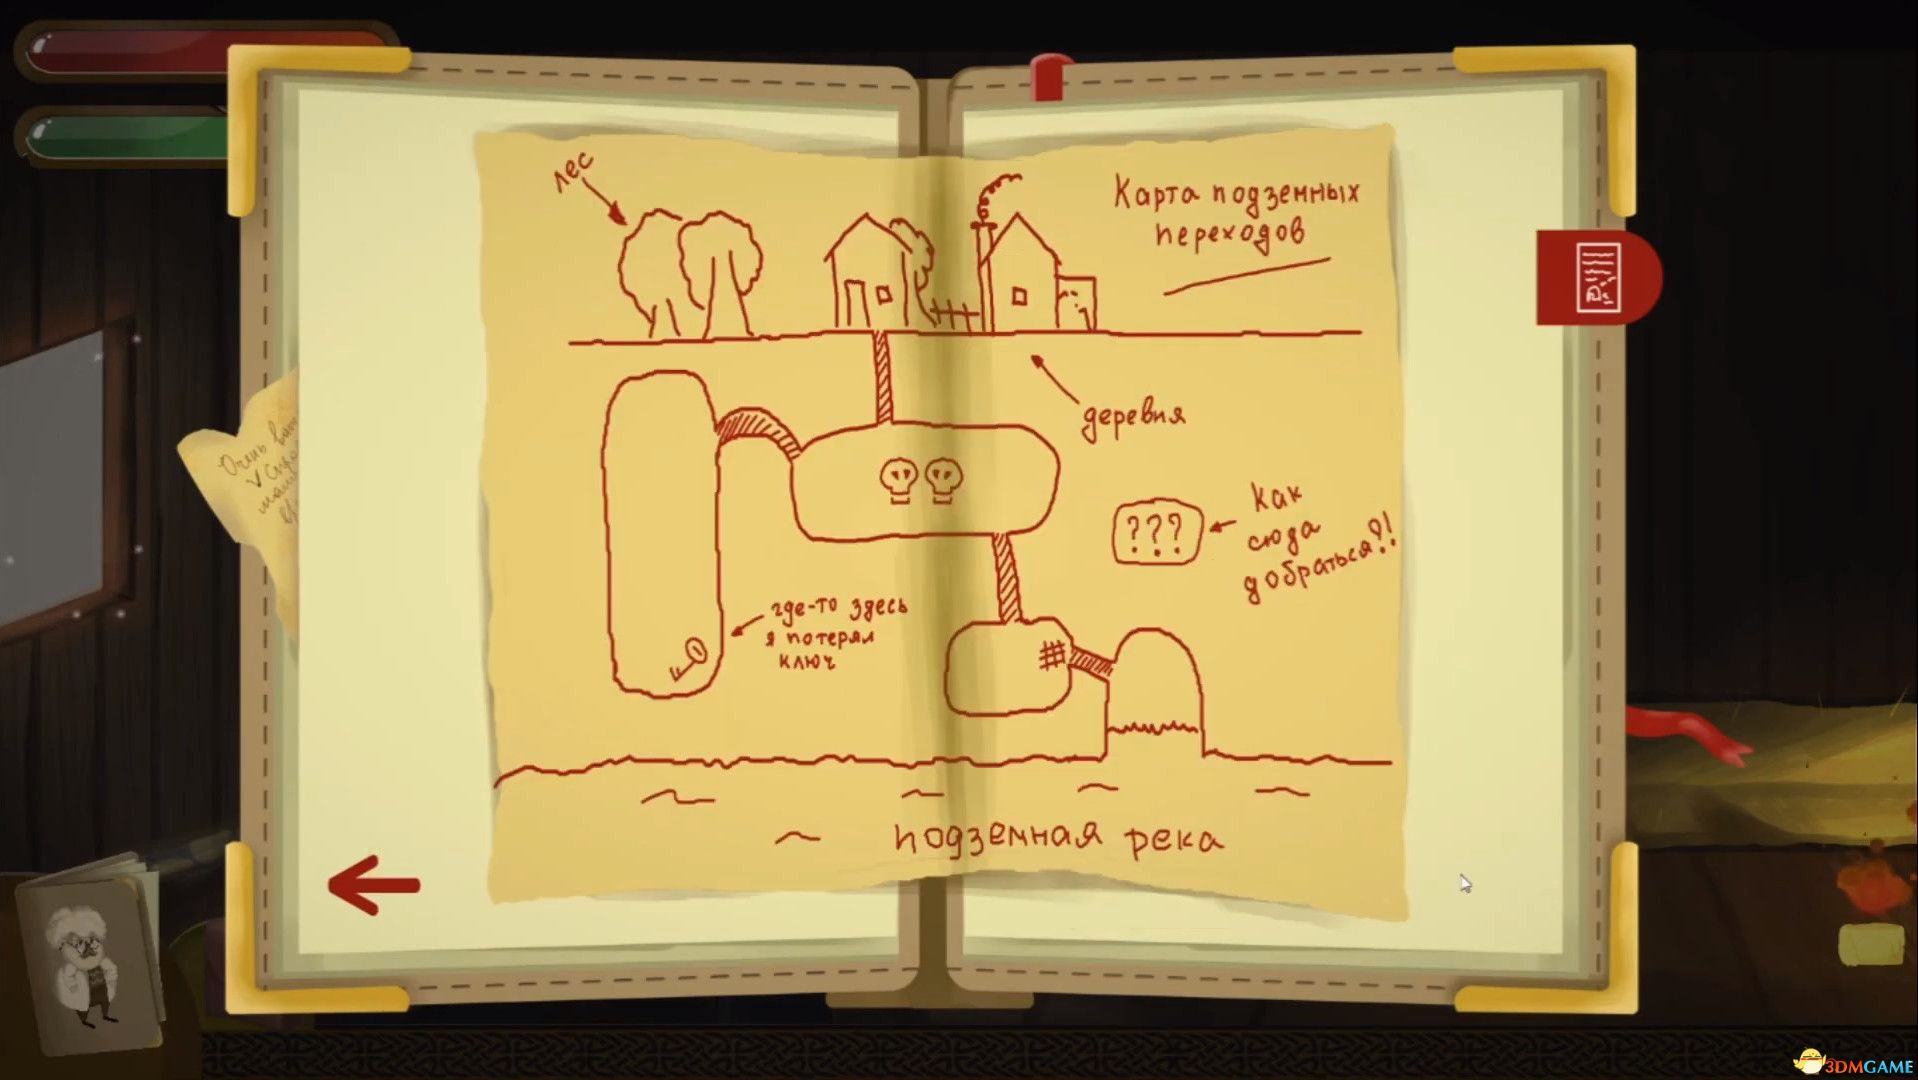 лес
Карта подземных
переходов
деревня
???
Как
сюда
добраться?!
где-то здесь
я потерял
ключ
подземная река
Очень
3DMGAME